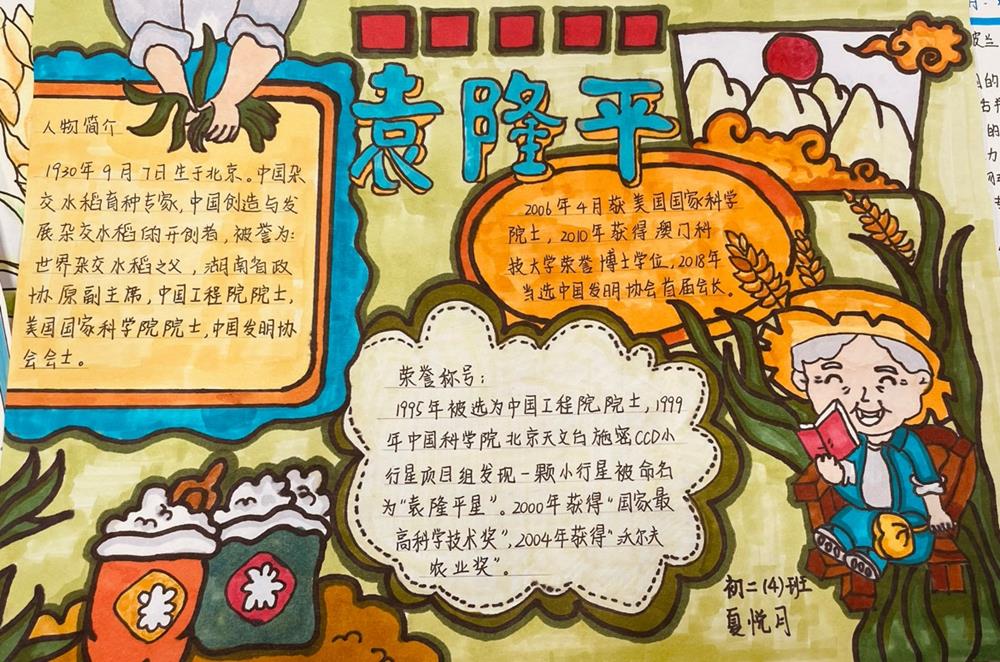 袁隆平
人物简介
1930年9月7日生于北京。中国杂
交水稻育种专家,中国创造与发
展杂交水稻的开创者,被誉为:
世界杂交水稻之父,湖南省政
协原副主席,中国工程院院士,
美国国家科学院院士,中国发明协
会会士。
2006年4月获美国国家科学
院院士,2010年获得澳门科
技大学荣誉博士学位,2018年
当选中国发明协会首届会长。
荣誉称号:
1995年被选为中国工程院院士,1999
年中国科学院北京天文台施密CCD小
行星项目组发现一颗小行星被命名
为“袁隆平星”。2000年获得“国家最
高科学技术奖”,2004年获得“沃尔夫
农业奖”。
米
米
初二(4)班
夏悦月